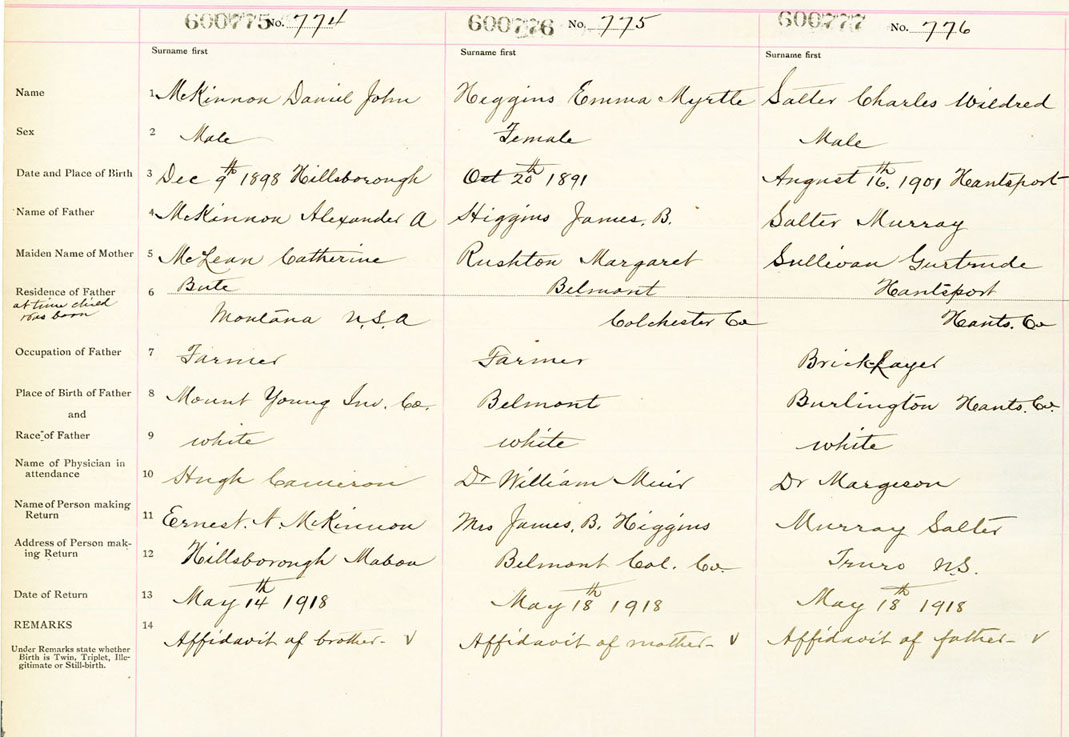 600775 No. 774 600776 No. 775 600777 No. 776
Surname first Surname first Surname first
Name 1 McKinnon Daniel John Higgins Emma Myrtle Salter Charles Wildred
Sex 2 Male Female Male
Date and Place of Birth 3 Dec 9th 1898 Hillsborough Oct 20th 1891 August 16th. 1901 Hantsport
Name of Father 4 McKinnon Alexander A Higgins James. B. Salter Murray
Maiden Name of Mother 5 McLean Catherine Rushton Margaret Sullivan Gurtrude
Residence of Father 6 Bute Belmont Hantsport
at time child
was born Montana U.S.A Colchester Co Hants. Co
Occupation of Father 7 Farmer Farmer Brick Layer
Place of Birth of Father 8 Mount Young Inv. Co. Belmont Burlington Hants. Co.
and
Race of Father 9 white white white
Name of Physician in
attendance 10 Hugh Cameron Dr William Muir Dr Margeson
Name of Person making
Return 11 Ernest. A. McKinnon Mrs James. B. Higgins Murray Salter
Address of Person mak-
ing Return 12 Hillsborough Mabou Belmont Col. Co. Truro N.S.
Date of Return 13 May 14th 1918 May 18th 1918 May 18th 1918
REMARKS 14 Affidavit of brother- √ Affidavit of mother- √ Affidavit of father- √
Under Remarks state whether
Birth is Twin, Triplet, Ille-
gitimate or Still-birth.